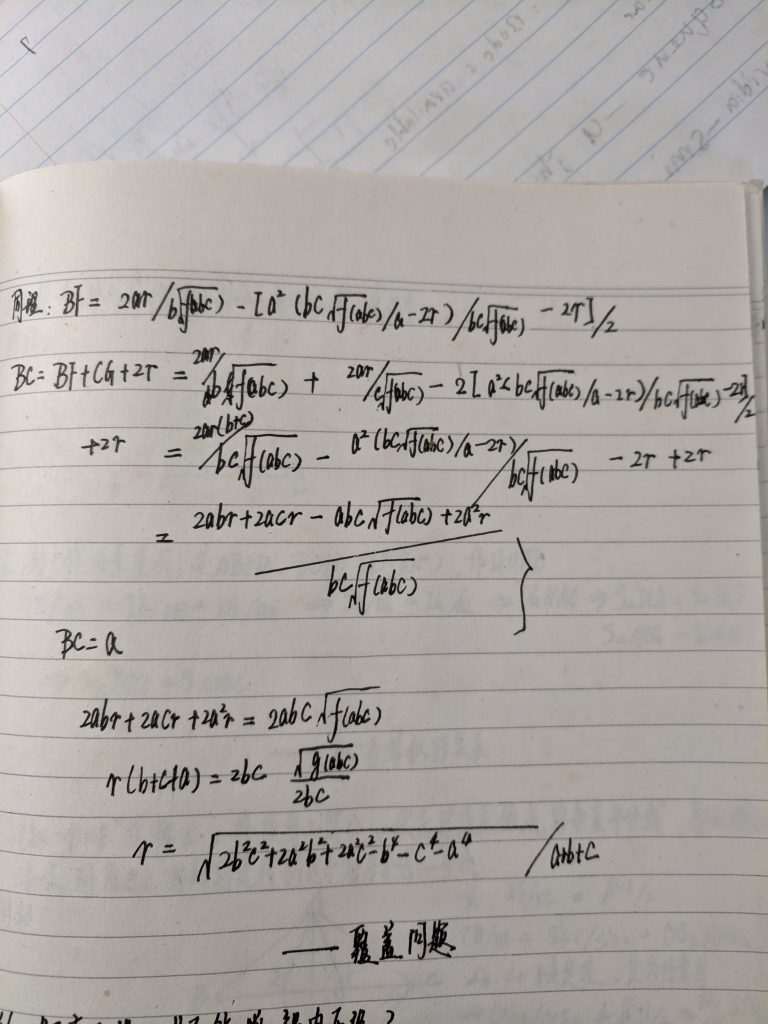 同理: BF = 2ar/b√f(abc) - [a² (bc√f(abc)/a-2r)/bc√f(abc) - 2r]/2
BC = BF+CG+2r = 2ar/b√f(abc) + 2ar/c√f(abc) - 2[a²(bc√f(abc)/a-2r)/bc√f(abc) -2r]/2
+2r = 2ar(b+c)/bc√f(abc) - a²(bc√f(abc)/a-2r)/bc√f(abc) - 2r + 2r
= 2abr+2acr - abc√f(abc) +2a²r / bc√f(abc) }
BC = a
2abr+2acr+2a²r = 2abc√f(abc)
r(b+c+a) = 2bc √g(abc) / 2bc
r = √2b²c²+2a²b²+2a²c²-b⁴-c⁴-a⁴ / a+b+c
—— 覆盖问题